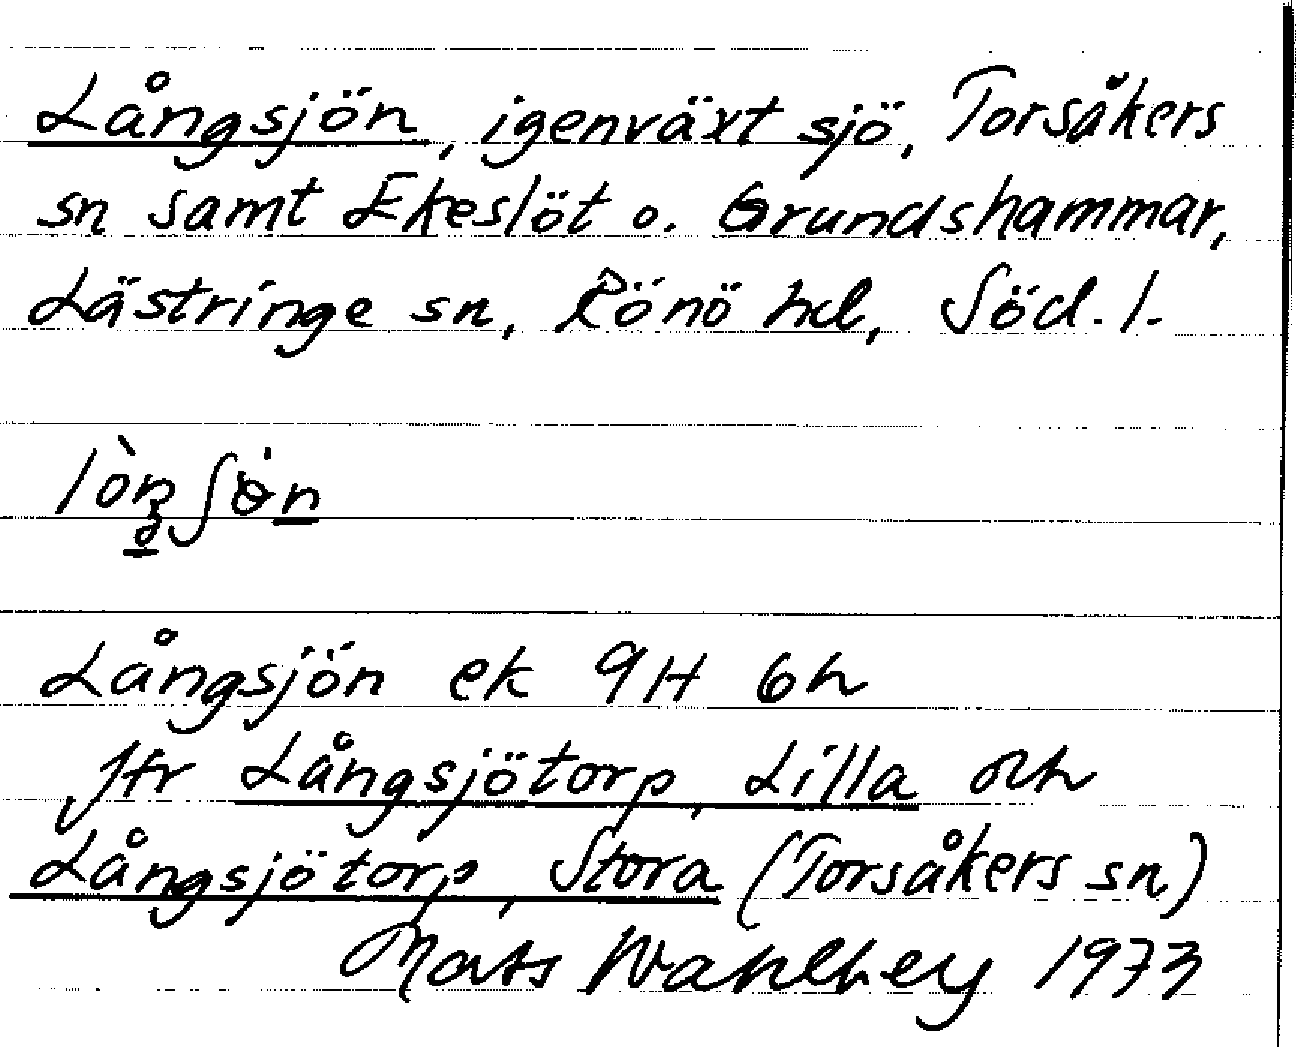 Långsjön, igenväxt sjö, Torsåkers
sn samt Ekeslöt o. Grundshammar,
Lästringe sn, Rönö hd, Söd. l.
Långsjön ek 9H 6h
Jfr Långsjötorp, Lilla och
Långsjötorp, Stora (Torsåkers sn)
Mats Wahlberg 1973